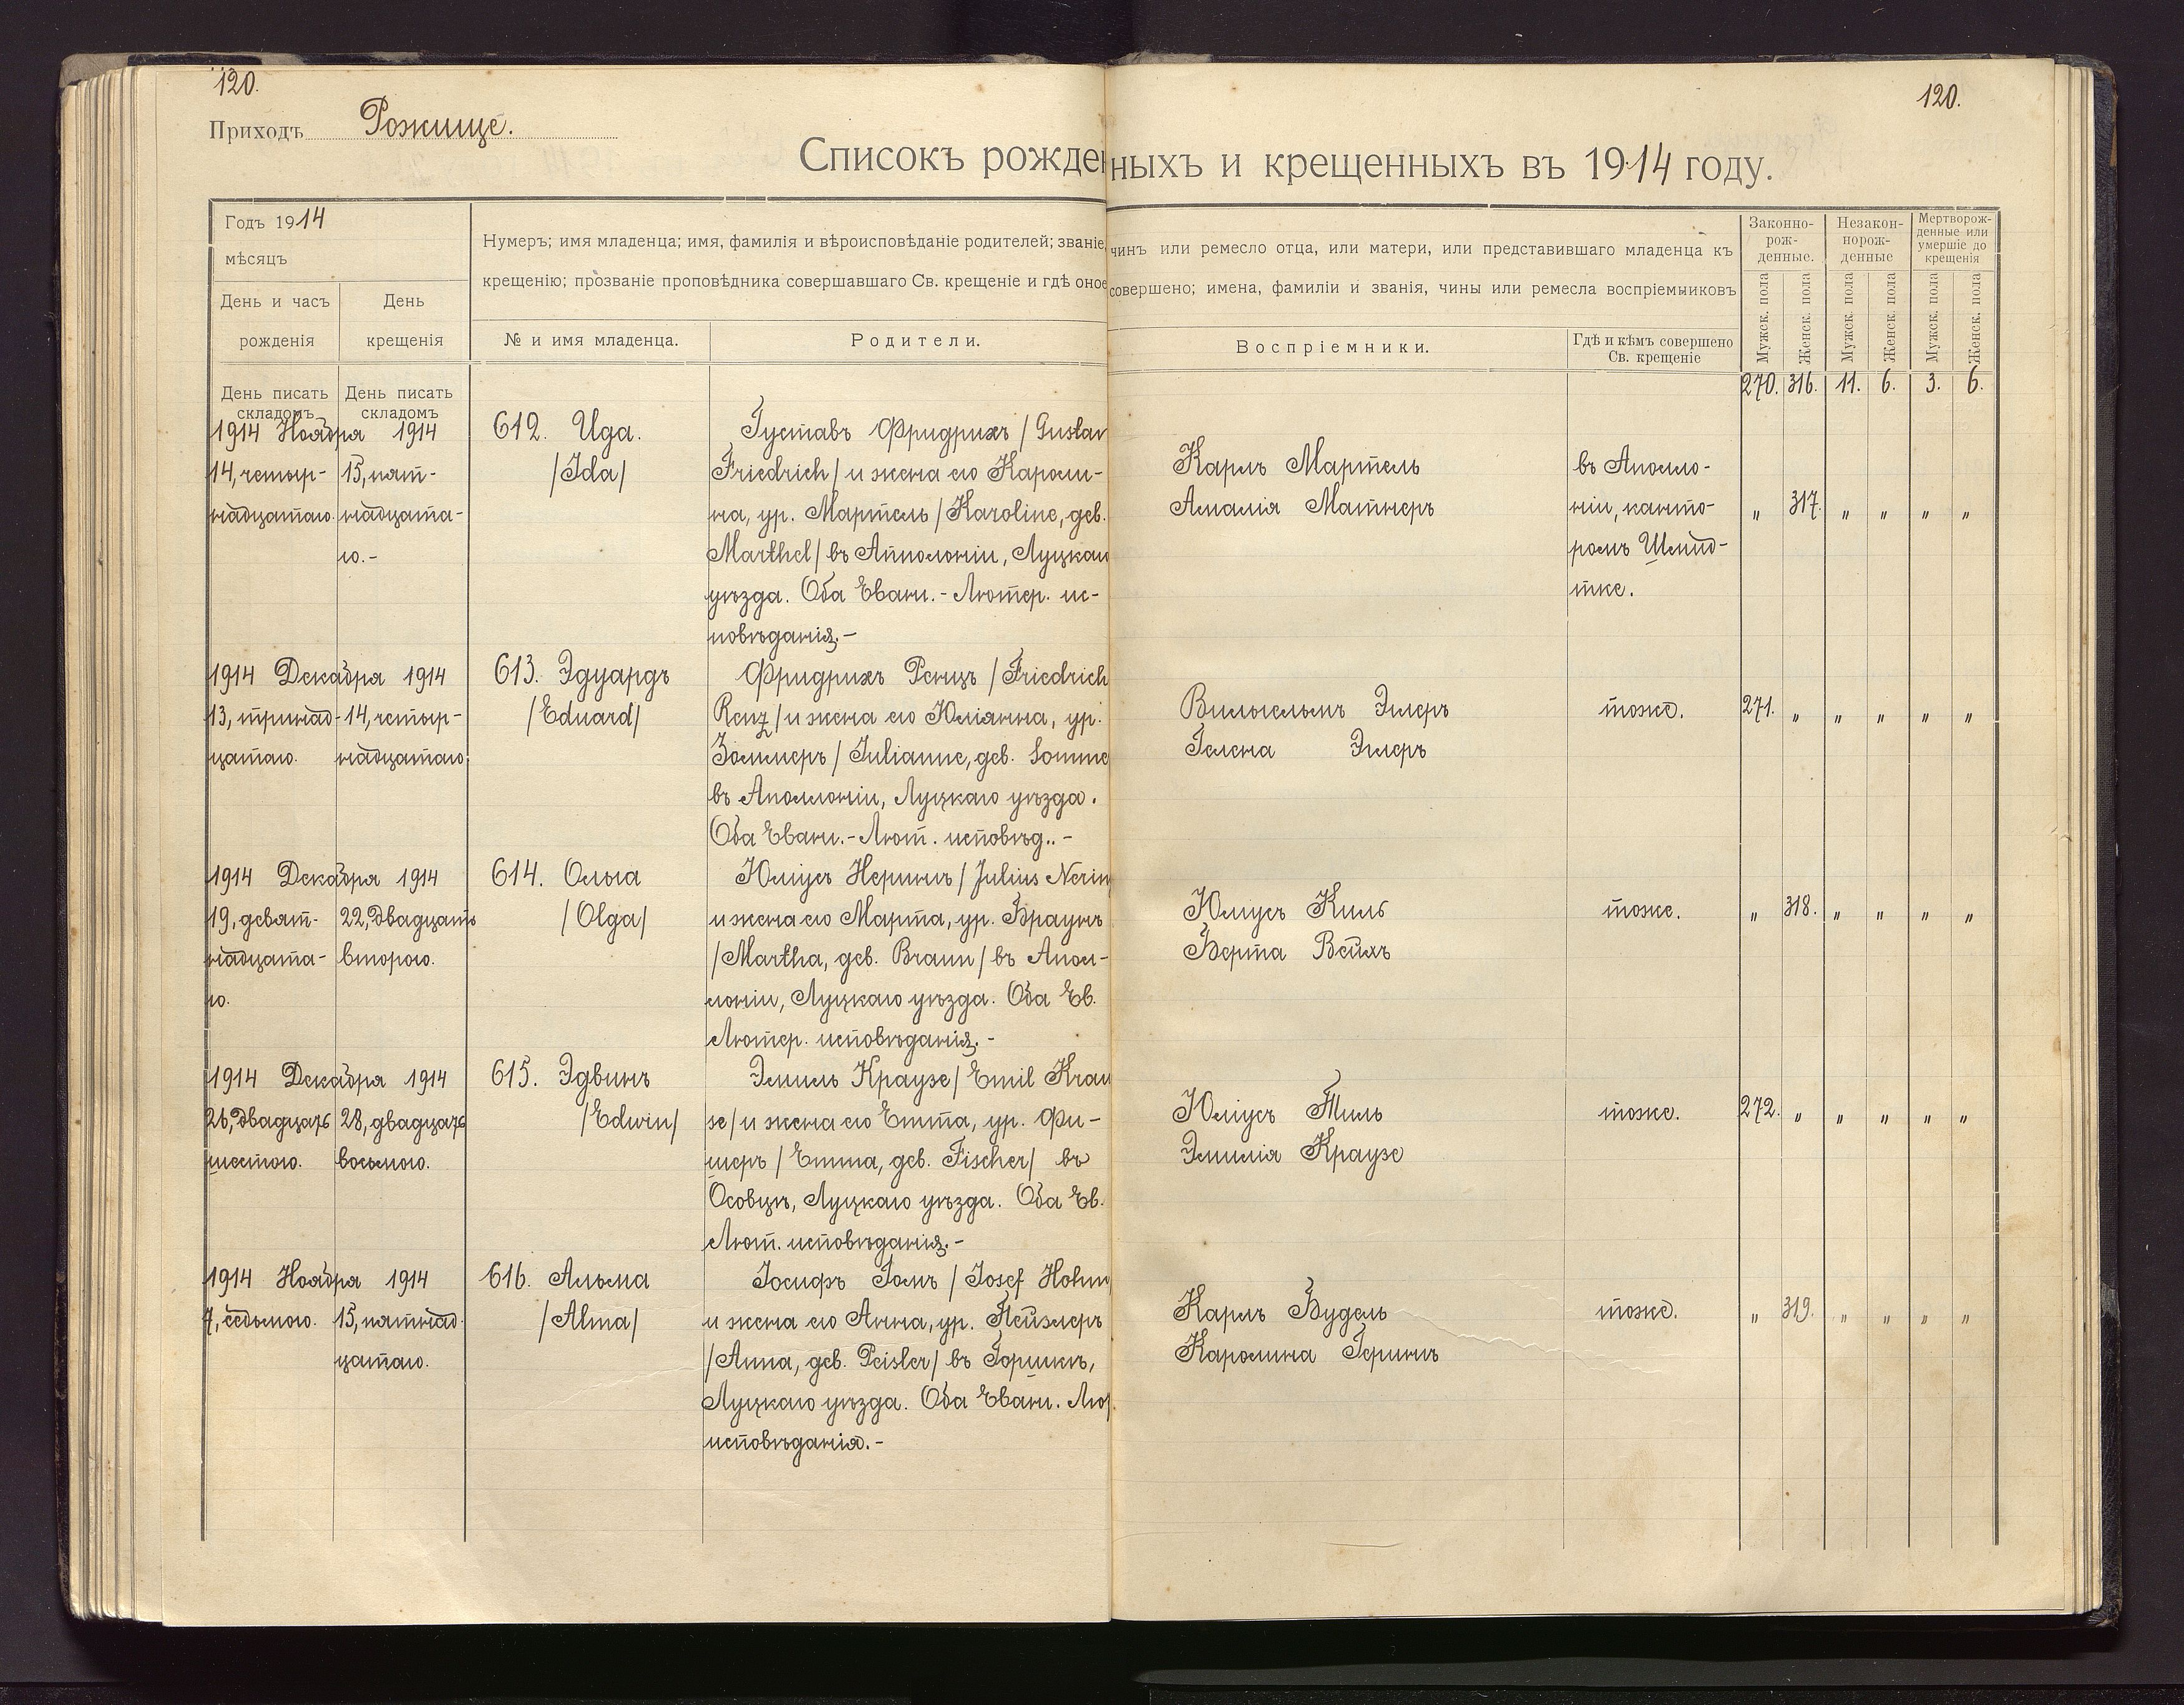 120.
Приходъ Рожище.
120.
Списокъ рожденныхъ и крещенныхъ въ 1914 году.
Годъ 1914
мѣсяцъ
День и часъ рожденія
День крещенія
Нумеръ; имя младенца; имя, фамилія и вѣроисповѣданіе родителей; званіе, чинъ или ремесло отца, или матери, или представившаго младенца къ
крещенію; прозваніе проповѣдника совершавшаго Св. крещеніе и гдѣ оное совершено; имена, фамиліи и званія, чины или ремесла воспріемниковъ
№ и имя младенца.
Родители.
Воспріемники.
Гдѣ и кѣмъ совершено
Св. крещеніе
Законно-
рож-
денные.
Незакон-
норож-
денные
Мертворож-
денные или
умершіе до
крещенія
Мужск. пола
Женск. пола
Мужск. пола
Женск. пола
Мужск. пола
Женск. пола
День писать складомъ
День писать складомъ
270. 316. 11. 6. 3. 6.
1914 Ноября 1914
14, четыр-
надцатаго.
15, пят-
надцата-
го.-
612. Ида.
/Ida/
Густавъ Фридрихъ /Gustav
Friedrich/ и жена его Кароли-
на, ур. Мартель /Karoline, geb.
Marthel/ въ Апполоніи, Луцкаго
уѣзда. Оба Еванг.-Лютер. ис-
повѣданія.-
Карлъ Мартель
Амалія Матнеръ
въ Аполло-
ніи, канто-
ромъ Шмид-
тке.
„ 317. „ „ „ „
1914 Декабря 1914
13, тринад-
цатаго.
14, четыр-
надцатаго.
613. Эдуардъ
/Eduard/
Фридрихъ Ренцъ /Friedrich
Renz/ и жена его Юліянна, ур.
Зоммеръ /Julianne, geb. Somme
въ Аполлоніи, Луцкаго уѣзда.
Оба Еванг.-Лют. исповѣд..-
Вильгельмъ Эглеръ
Гелена Эглеръ
тоже.
271. „ „ „ „ „
1914 Декабря 1914
19, девят-
надцата-
го.
22, двадцать
второго.
614. Ольга
/Olga/
Юліусъ Нерингъ /Julius Nering
и жена его Марта, ур. Браунъ
/Martha, geb. Braun/ въ Апол-
лоніи, Луцкаго уѣзда. Оба Ев.
Лютер. исповѣданія.-
Юліусъ Киль
Берта Вейхъ
тоже.
„ 318. „ „ „ „
1914 Декабря 1914
26, двадцать
шестого.
28, двадцать
восьмого.
615. Эдвинъ
/Edwin/
Эмиль Краузе /Emil Krau
se/ и жена его Емма, ур. Фи-
шеръ /Emma, geb. Fischer/ въ
Осовцѣ, Луцкаго уѣзда. Оба Ев.
Лют. исповѣданія.-
Юліусъ Тиль
Эмилія Краузе
тоже.
272. „ „ „ „ „
1914 Ноября 1914
7, седьмого.
15, пятнад-
цатаго.
616. Альма
/Alma/
Іосифъ Гомъ /Josef Hohm
и жена его Анна, ур. Пейзлеръ
/Anna, geb. Peisler/ въ Горшкѣ,
Луцкаго уѣзда. Оба Еванг. Лют
исповѣданія.-
Карлъ Будель
Каролина Герингъ
тоже.
„ 319. „ „ „ „